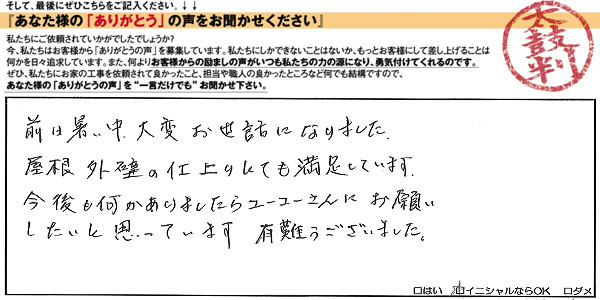 そして、最後にぜひこちらをご記入ください。↓↓
『あなた様の「ありがとう」の声をお聞かせください』
私たちにご依頼されていかがでしたでしょうか?
今、私たちはお客様から「ありがとうの声」を募集しています。私たちにしかできないことはないか、もっとお客様にして差し上げることは
何かを日々追求しています。また、何よりお客様からの励ましの声がいつも私たちの力の源になり、勇気付けてくれるのです。
ぜひ、私たちにお家の工事を依頼されて良かったこと、担当や職人の良かったところなど何でも結構ですので、
あなた様の「ありがとうの声」を“一言だけでも”お聞かせ下さい。
太鼓判
前は暑い中、大変お世話になりました。
屋根 外壁の仕上りとても満足しています。
今後も何かありましたらユーコーさんにお願い
したいと思っています 有難うございました。
□はい ☑イニシャルならOK □ダメ